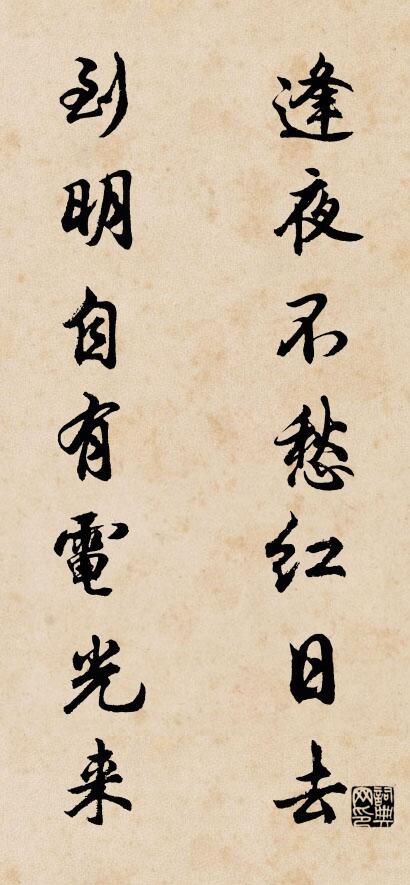 逢夜不愁红日去
到明自有電光来
詞典网印